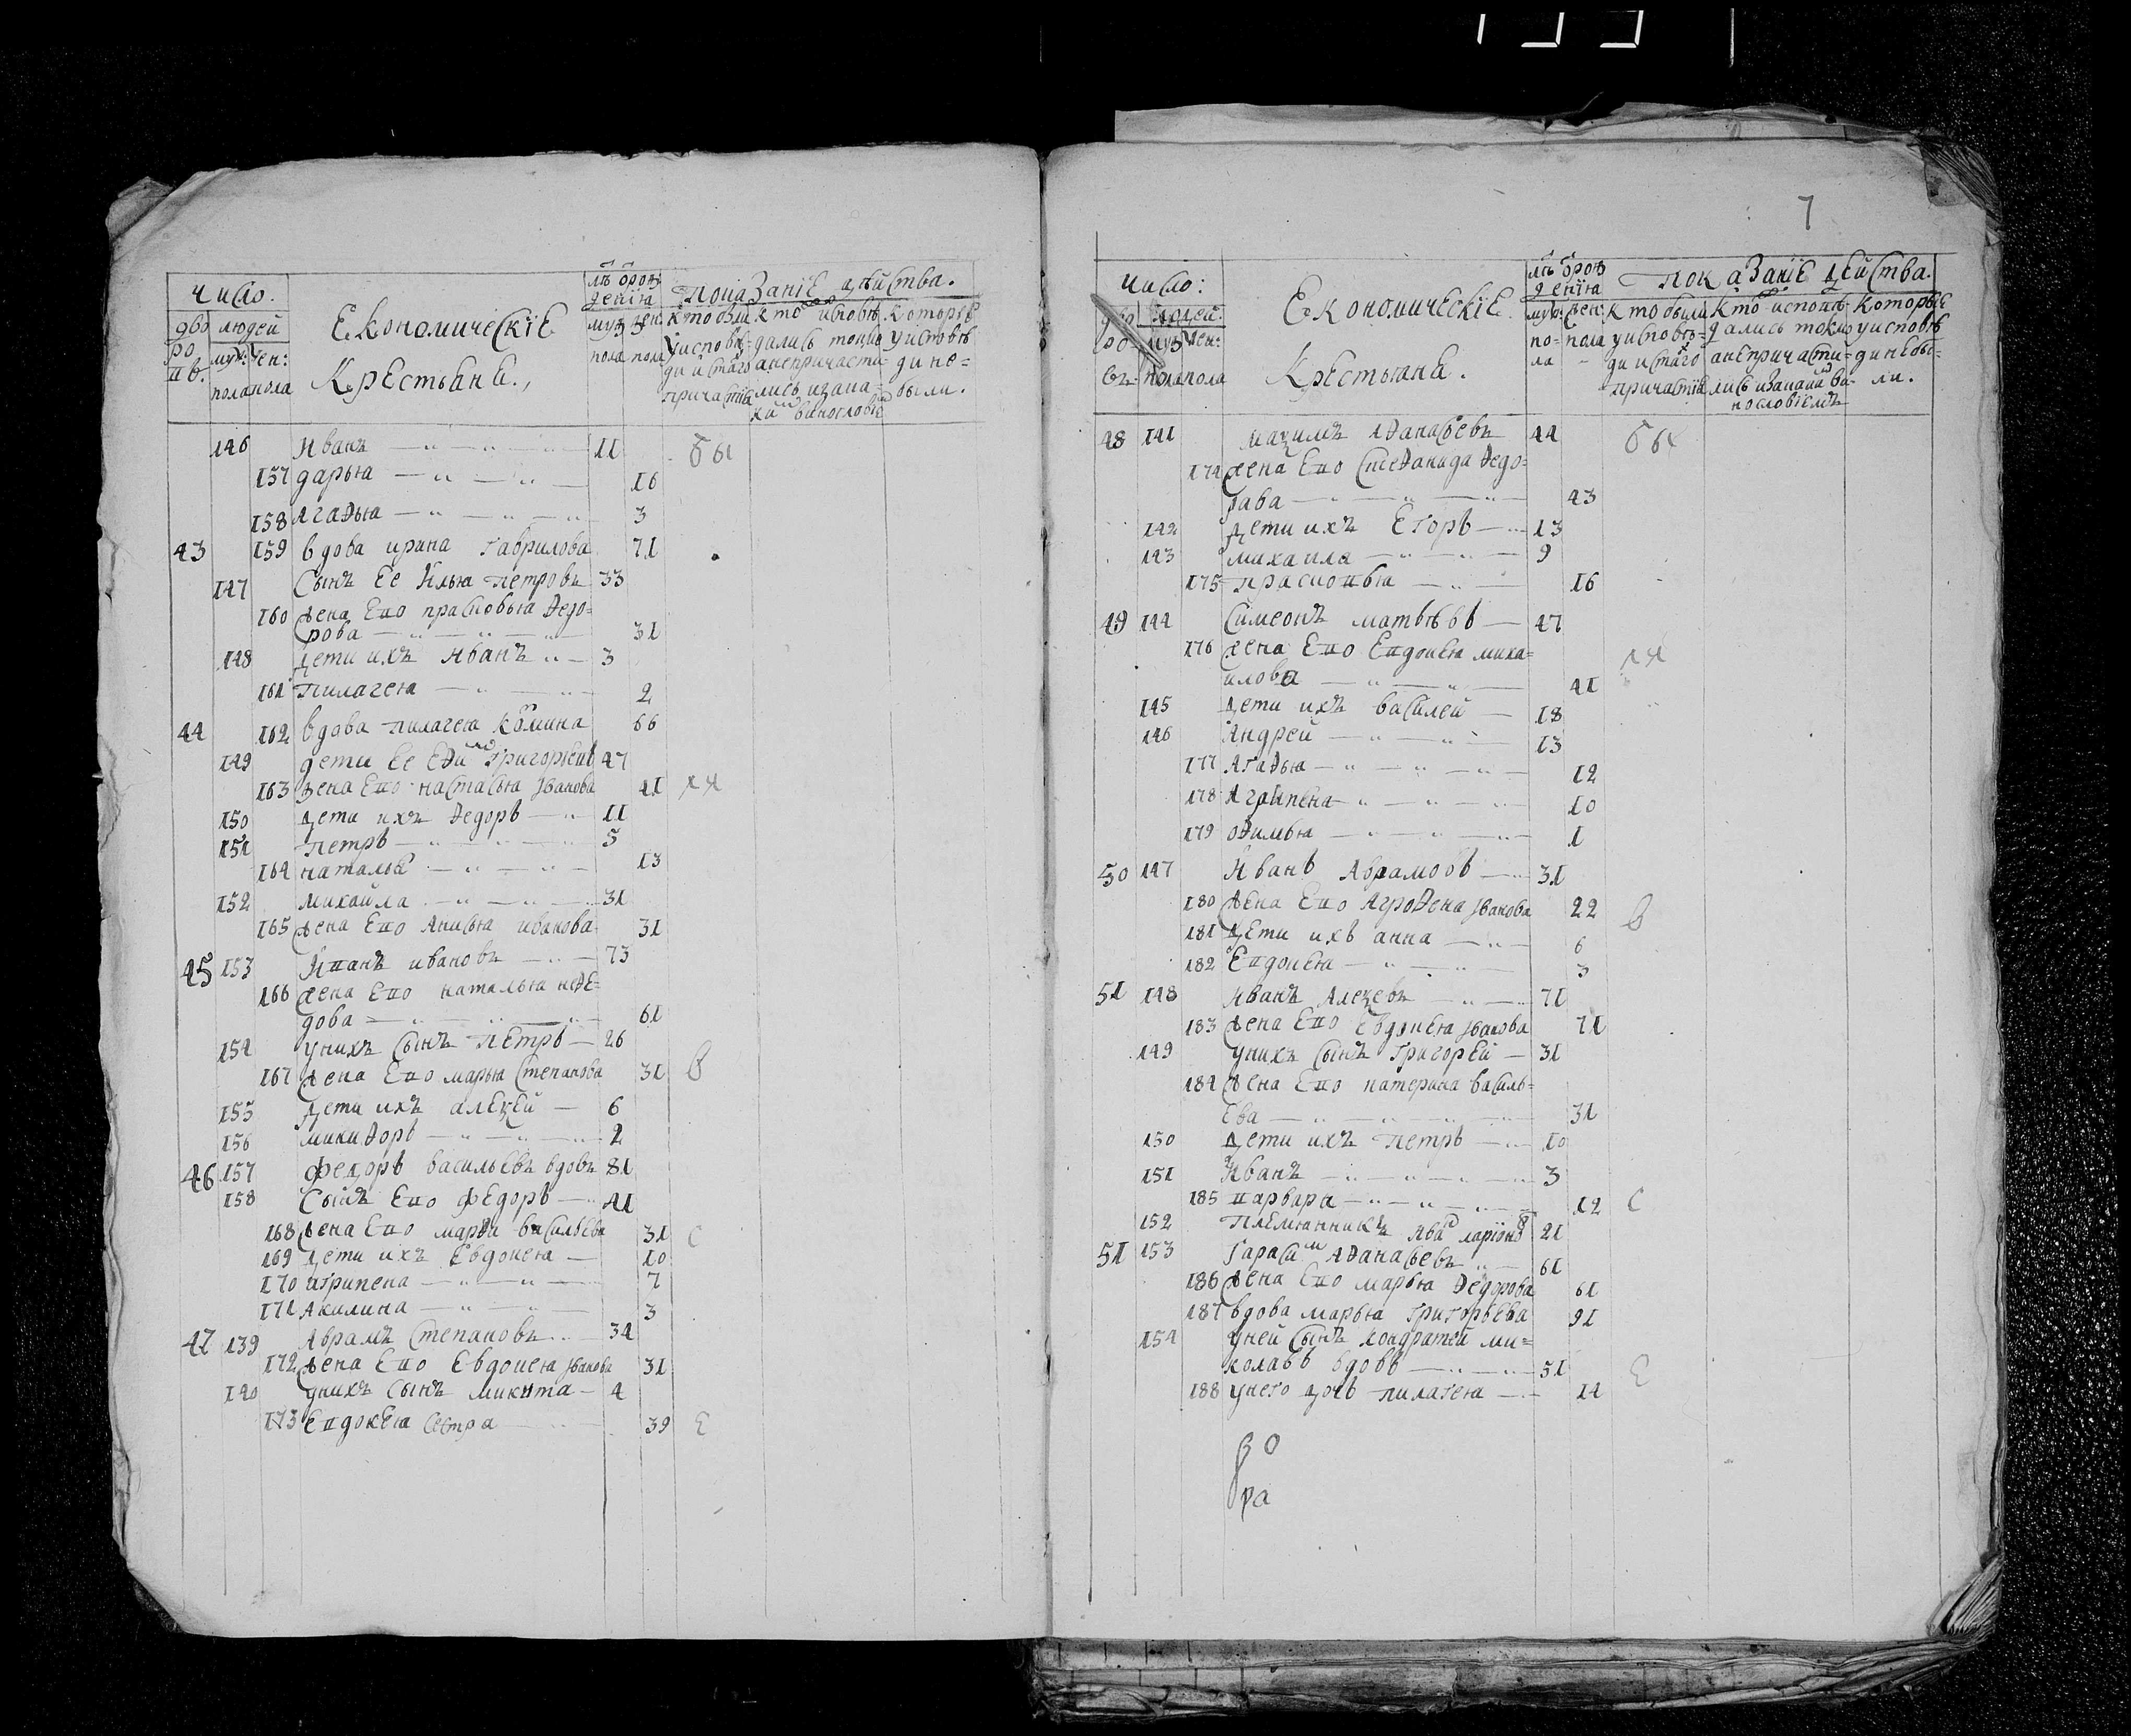 7
Число.
Екөномическіе
Крестьяне.
лѣтъ от рождения
Показание действа.
дворовъ
людей
муж: пола
жен: пола
муж пола
жен пола
Кто были у исповеди и с͠таго причастия
Кто исповедались токмо а не причастились и за каким винословіемъ
Которые у исповеди не были.
146 Иванъ 11 бы
157 дарья 16
158 Агафья 3
43 159 вдова ирина гаврилова 71
147 Сынъ ее Илья петровъ 33
160 жена Ево прасковья Федо-
рова 31
148 дети ихъ Иванъ 3
161 пилагея 2
44 162 вдова пилагея 66
149 дети ее григорьевъ 47
163 жена Ево настасья Iванова 41 ли
150 дети ихъ Федоръ 11
151 петръ 5
164 наталья 13
152 михайла 31
165 жена Ево Анисья иванова 31
45 153 Иванъ ивановъ 73
166 жена Ево наталья нефе-
дова 61
154 у нихъ сынъ петръ 26
167 жена Ево марья Степанова 31 в
155 дети ихъ алеѯей 6
156 микифоръ 2
46 157 федоръ васильевъ вдовъ 81
158 Сынъ Ево федоръ 41
168 жена Ево марфа васильева 31 с
169 дети ихъ Евдокея 10
170 агрипена 7
171 Акилина 3
47 139 Аврамъ Степановъ 34
172 жена Ево Евдокея Iванова 31
140 у нихъ сынъ микита 4
173 Евдокея сестра 39 Е
Число:
Економическіе
Крестьяна.
лѣтъ от рождения
Показаніе действа.
людей
муж пола
жен: пола
муж: пола
жен: пола
Кто были у исповеди и с͠таго причастия
Кто исповедались токмо а не причастились и за каким винословіемъ
Которые у исповеди не были.
48 141 маѯимъ Афанасьевъ 44 бы
174 жена Ево Степанида Федо-
рава 43
142 дети ихъ Егоръ 13
143 михаила 9
175 прасковья 16
49 144 Симеонъ матвѣевъ 47
176 жена Ево Евдокея миха-
илова 41 ли
145 дети ихъ василей 18
146 Андрей 13
177 Агафья 12
178 Агрипена 10
179 офимья 1
50 147 Иванъ Аврамовъ 31
180 жена Ево Агрофена Iванова 22 в
181 дети ихъ анна 6
182 Евдокея 3
51 148 Иванъ Алеѯевъ 71
183 жена Ево Евдокея Iванова 71
149 у нихъ сынъ григорей 31
184 жена Ево катерина василь-
ева 31
150 дети ихъ петръ 10
151 Иванъ 3
185 варвара 12 с
152 племянникъ Иванъ ларіоновъ 21
51 153 Гарасим Афанасьевъ 61
186 жена Ево марья Федорова 61
187 вдова марья григорьева 91
154 у ней сынъ кондратей ми-
колаевъ вдовъ 51 Е
188 у него дочь пилагея 14
во
ра